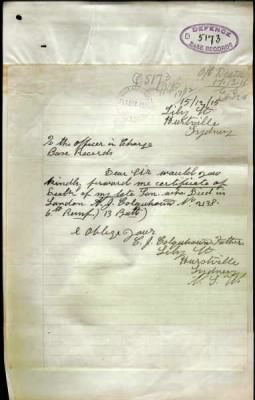 DEFENCE
5173
BASE RECORDS
C5173
15/12/15
Lily St
Hurstville
Sydney
To the Officer in Charge
Base Records
Dear Sir would you
kindly forward me certificate of
Death of my late Son, who Died in
London A. J. Colquhoun No 2138.
6th Reinf. 13 Batt)
& Oblige your
C. J. Colquhoun Father
Lily St
Hurstville
Sydney
N. S. W.